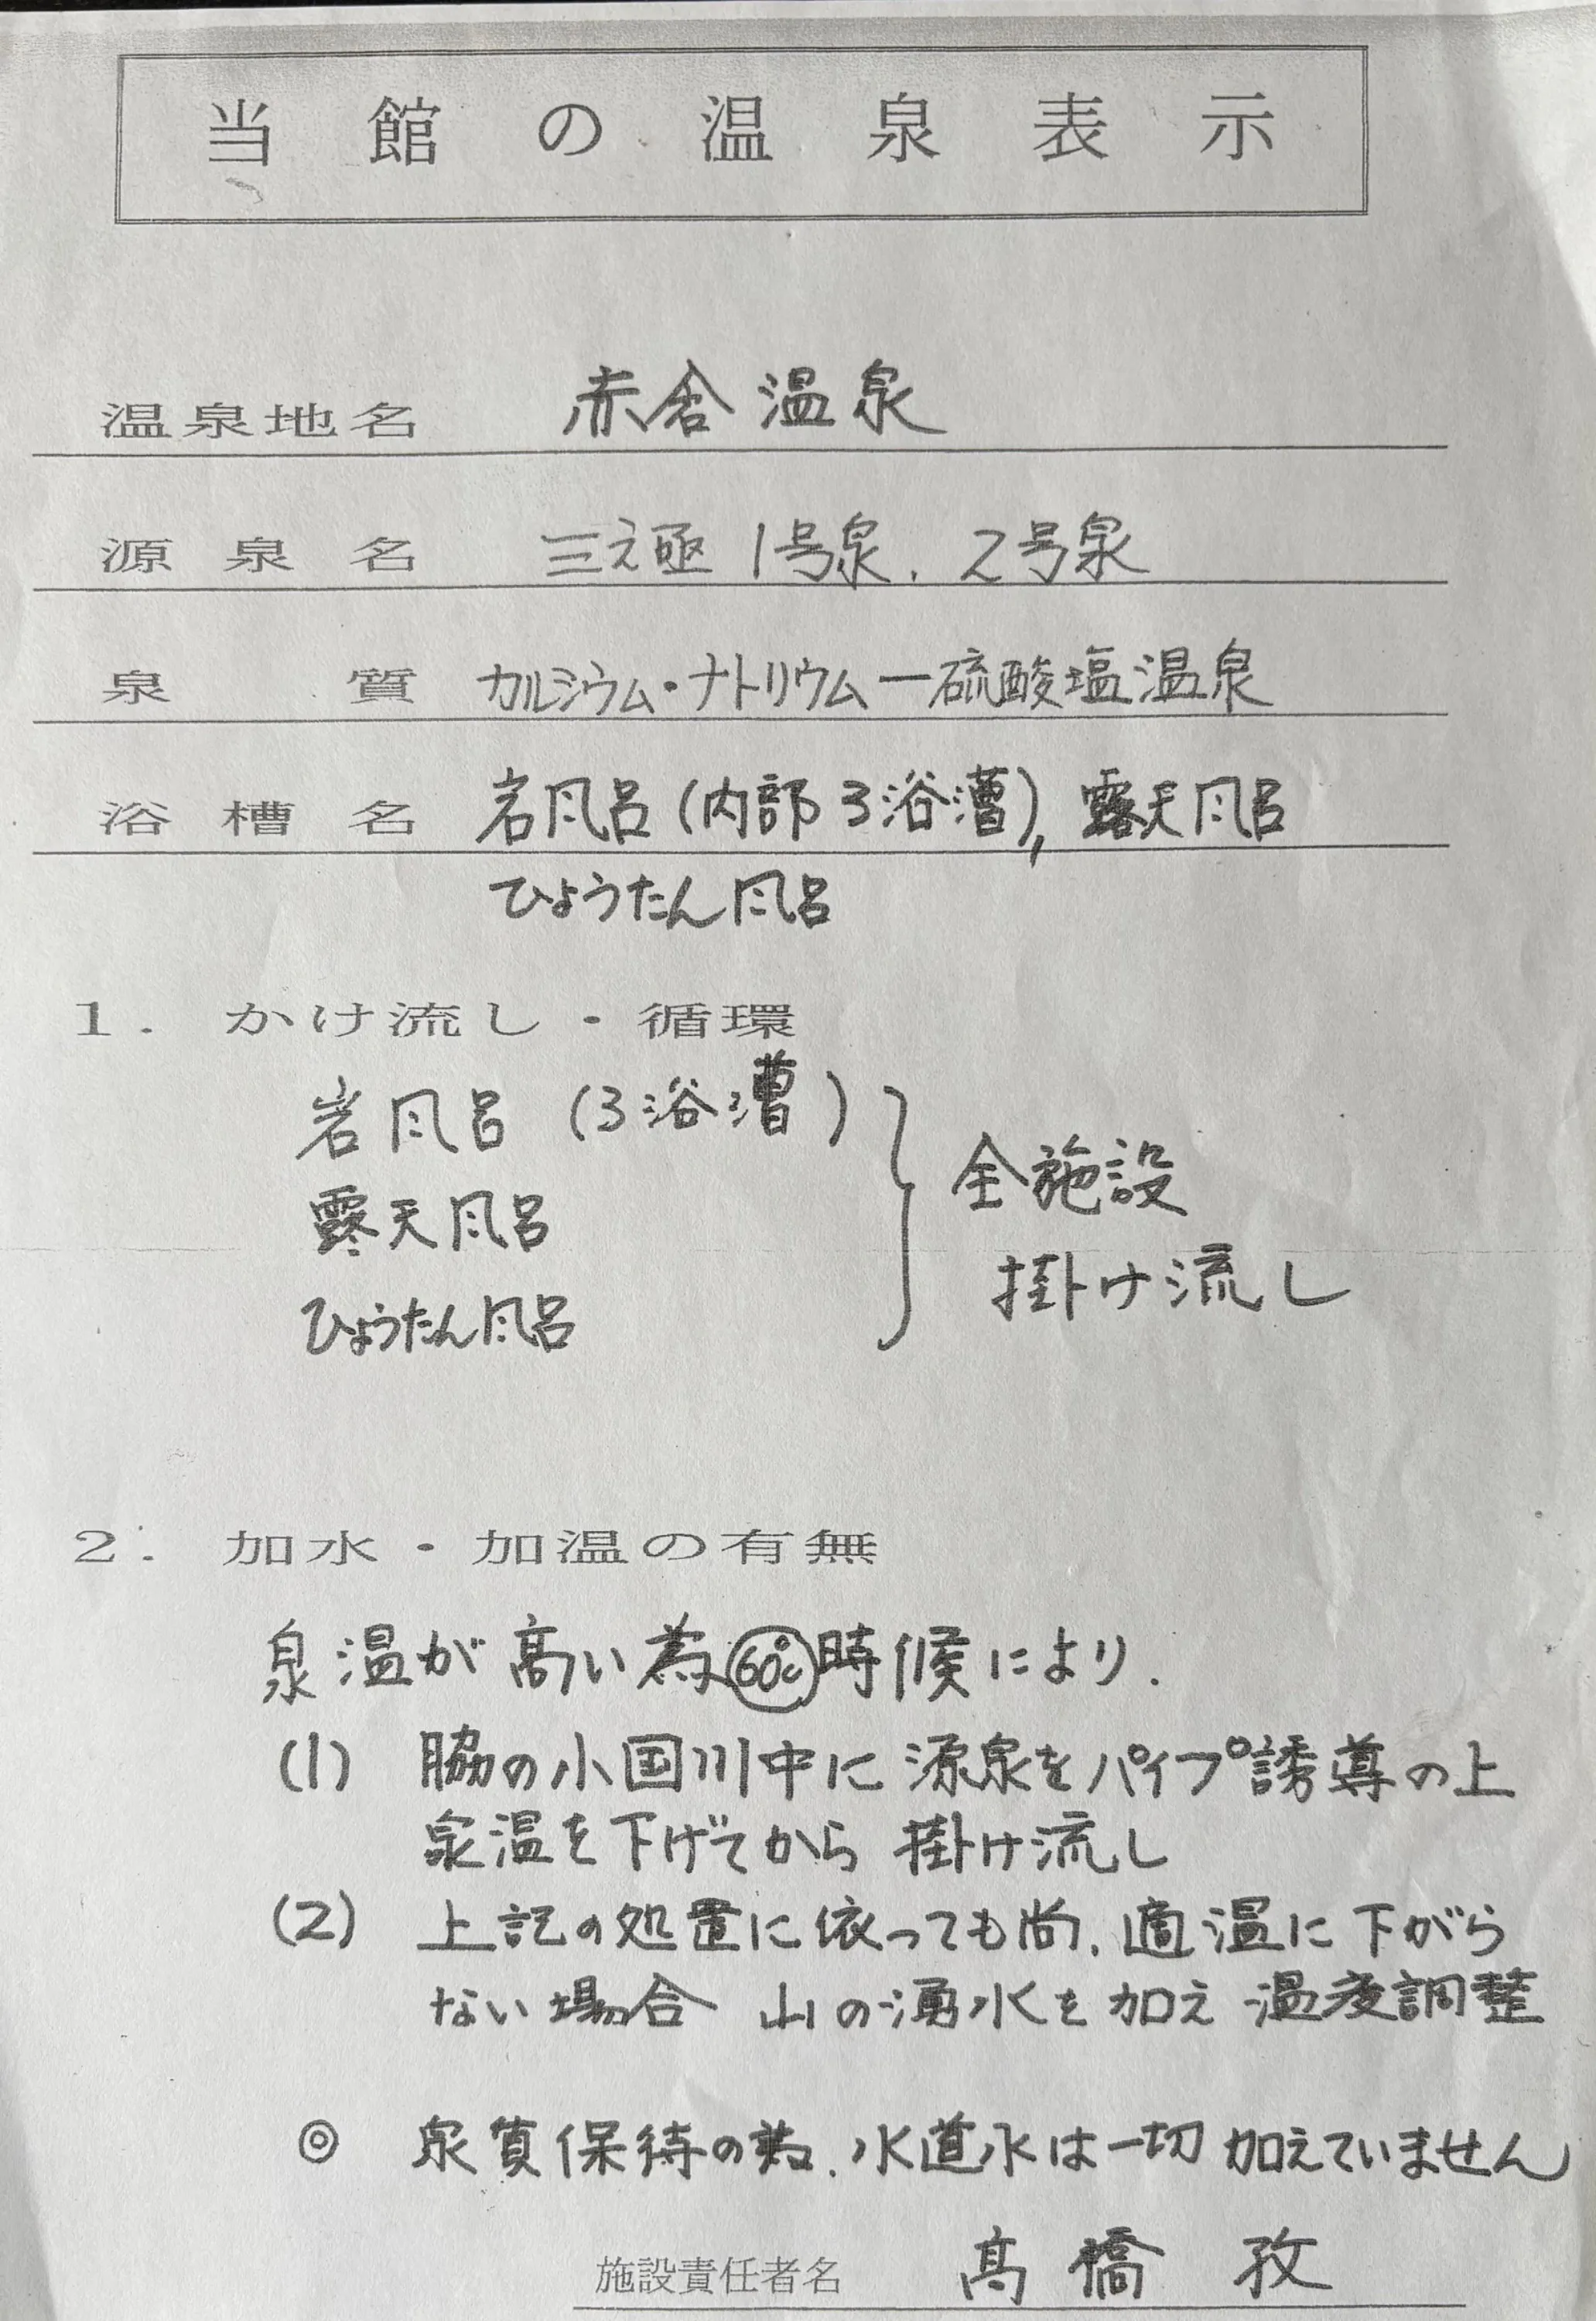 当館の温泉表示
温泉地名 赤倉温泉
源泉名 三之亟 1号泉、2号泉
泉質 カルシウム・ナトリウム一硫酸塩温泉
浴槽名 岩風呂(内部3浴漕),露天風呂
ひょうたん風呂
1. かけ流し・循環
岩風呂 (3浴漕)
全施設
露天風呂
掛け流し
ひょうたん風呂
2. 加水・加温の有無
泉温が高い為60℃時候により、
(1) 脇の小国川中に源泉をパイプ誘導の上
泉温を下げてから掛け流し
(2) 上記の処置に依っても尚、適温に下がら
ない場合 山の湧水を加え温度調整
◎ 泉質保持の為、水道水は一切加えていません
施設責任者名 髙橋 孜